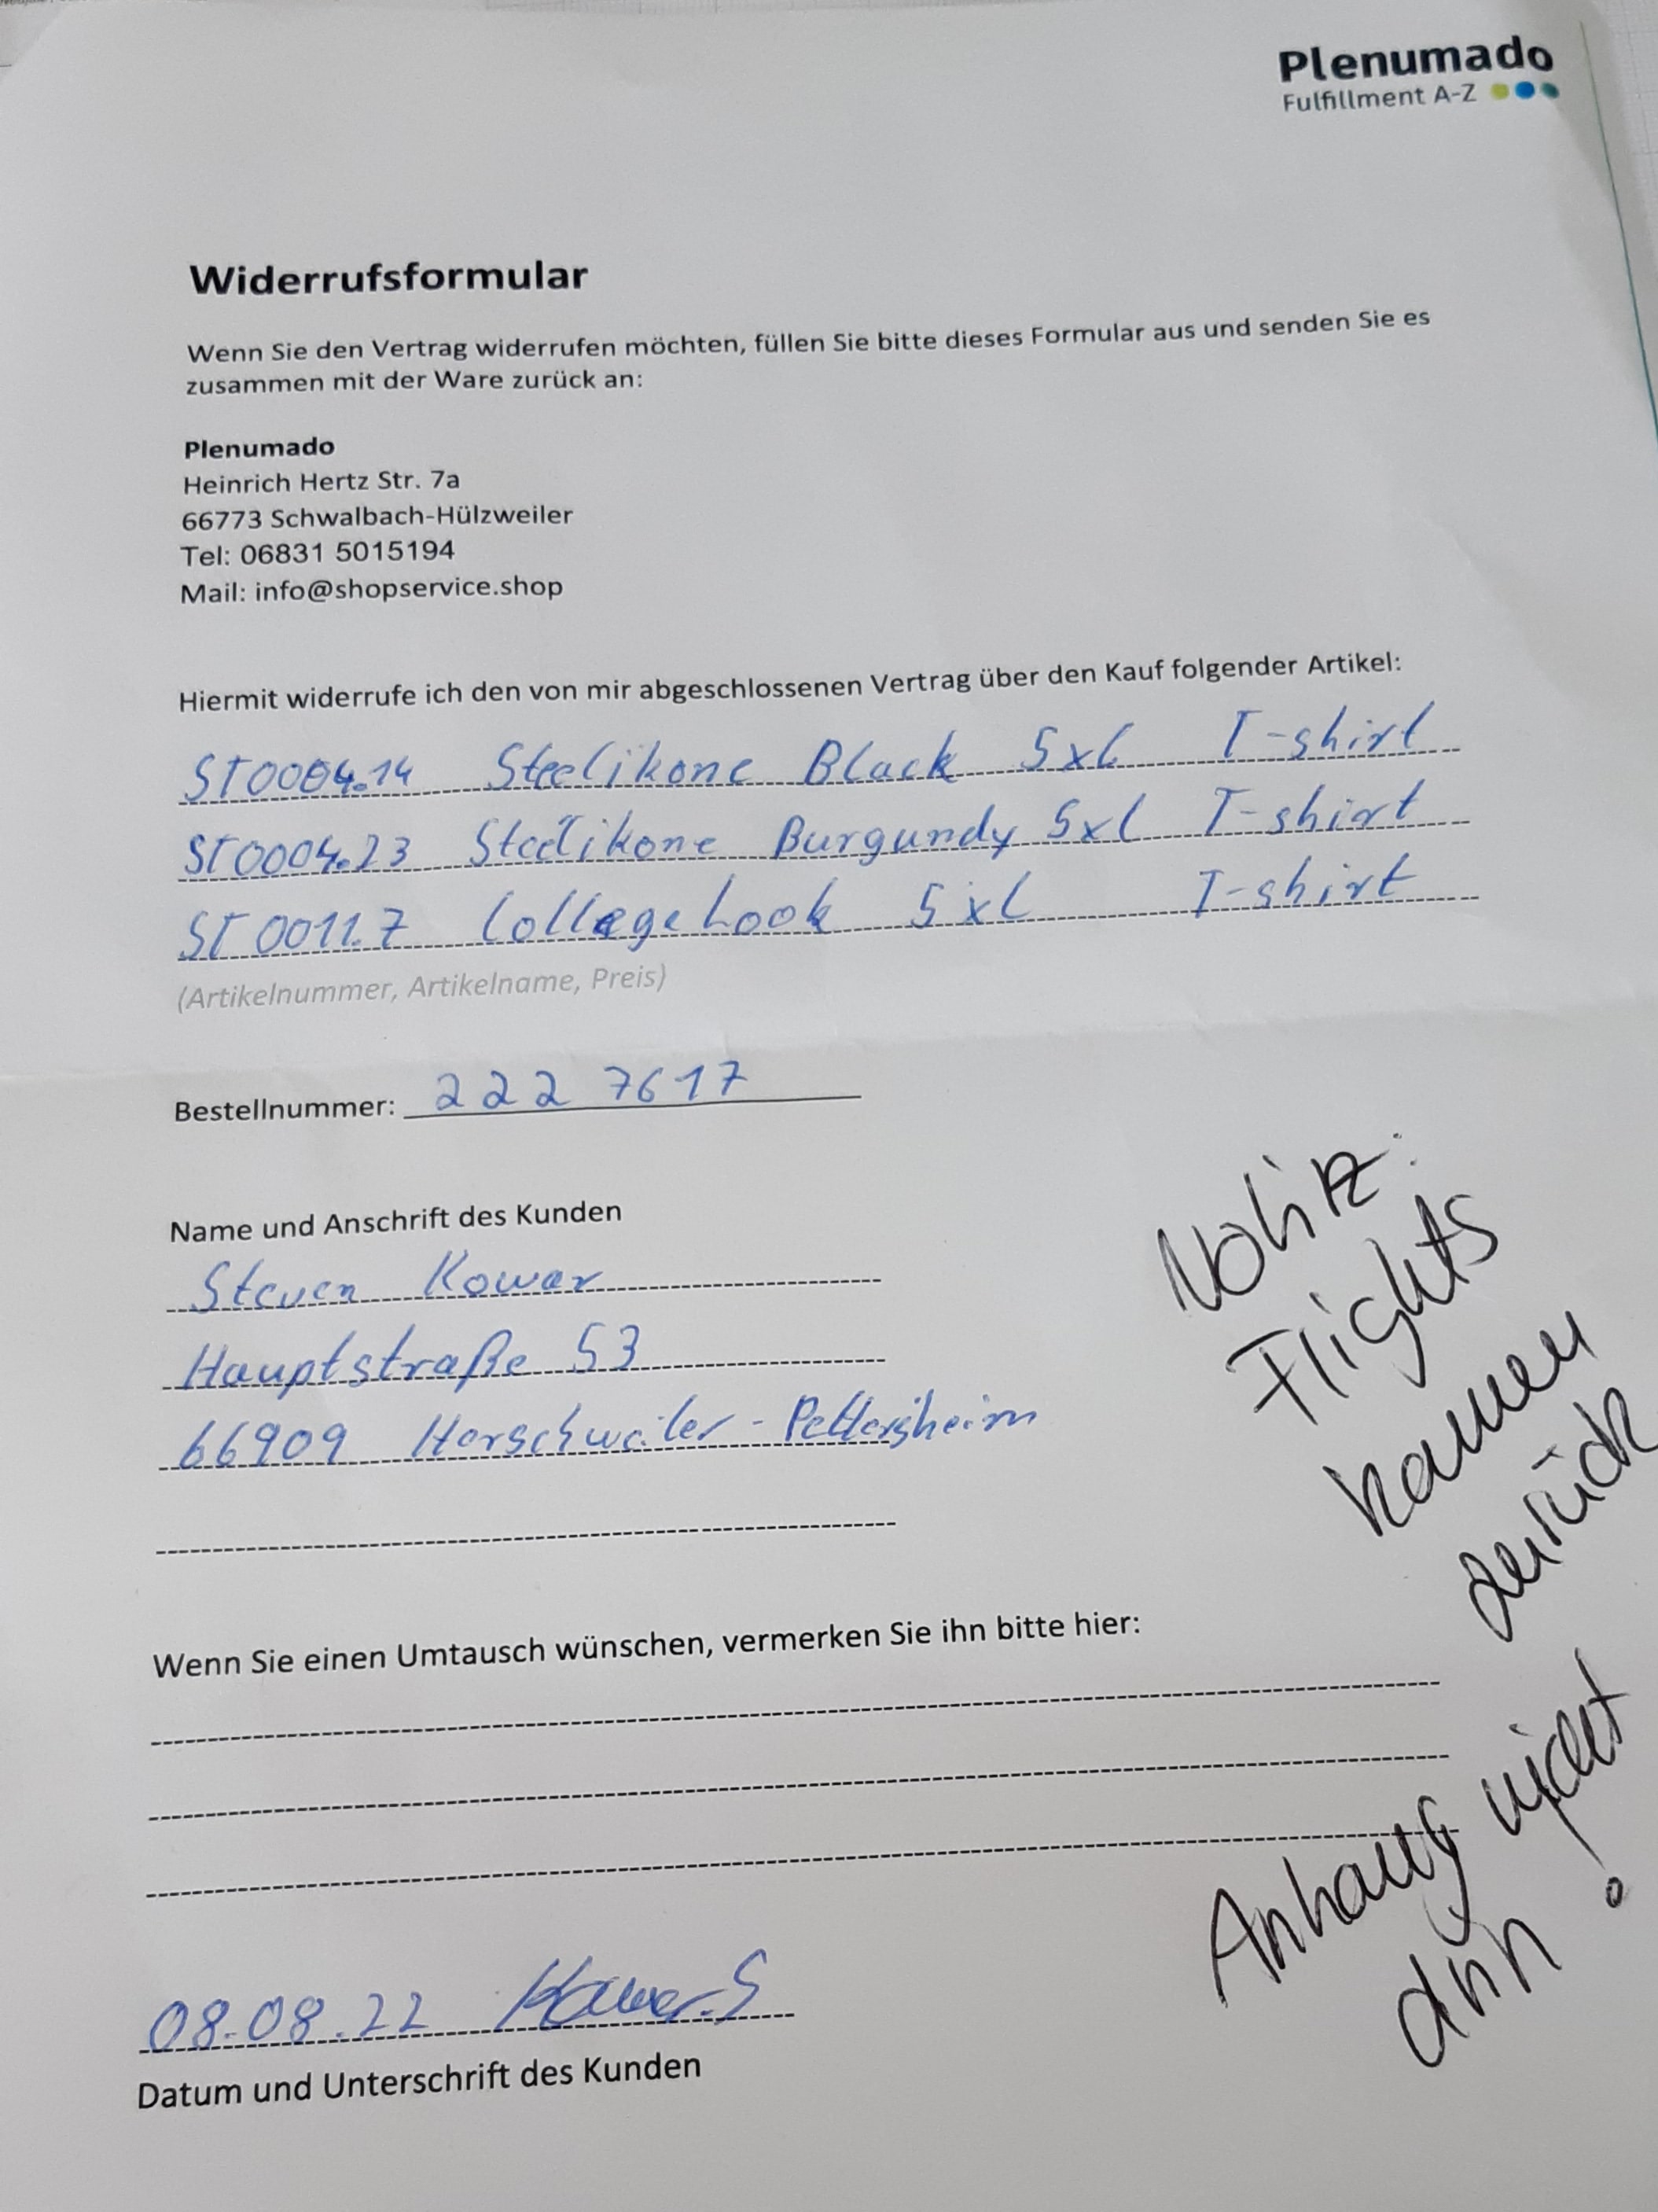 Plenumado
Fulfillment A-Z
Widerrufsformular
Wenn Sie den Vertrag widerrufen möchten, füllen Sie bitte dieses Formular aus und senden Sie es
zusammen mit der Ware zurück an:
Plenumado
Heinrich Hertz Str. 7a
66773 Schwalbach-Hülzweiler
Tel: 06831 5015194
Mail: info@shopservice.shop
Hiermit widerrufe ich den von mir abgeschlossenen Vertrag über den Kauf folgender Artikel:
ST0004.14 Steelikone Black 5xL T-shirt
ST0004.23 Steelikone Burgundy 5xL T-shirt
ST0011.7 College Look 5xL T-shirt
(Artikelnummer, Artikelname, Preis)
Bestellnummer: 222 7617
Name und Anschrift des Kunden
Steven Kower
Hauptstraße 53
66909 Herschweiler-Pettersheim
Wenn Sie einen Umtausch wünschen, vermerken Sie ihn bitte hier:
08.08.22 Kower.S
Datum und Unterschrift des Kunden
Notiz:
Flights
kamen
zurück
Anhang nicht
drin!